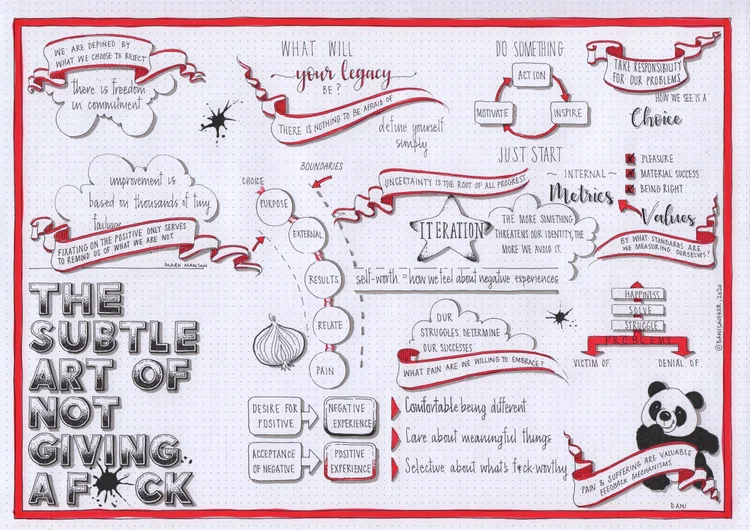 WE ARE DEFINED BY
WHAT WE CHOOSE TO REJECT
there is freedom
in commitment
WHAT WILL
your legacy
BE?
THERE IS NOTHING TO BE AFRAID OF
define yourself
simply
DO SOMETHING
ACTION
MOTIVATE
INSPIRE
JUST START
TAKE RESPONSIBILITY
FOR OUR PROBLEMS
HOW WE SEE IS A
Choice
improvement is
based on thousands of tiny
failures
FIXATING ON THE POSITIVE ONLY SERVES
TO REMIND US OF WHAT WE ARE NOT.
MARK MANSON
BOUNDARIES
CHOICE
PURPOSE
EXTERNAL
RESULTS
RELATE
PAIN
UNCERTAINTY IS THE ROOT OF ALL PROGRESS
ITERATION
THE MORE SOMETHING
THREATENS OUR IDENTITY, THE
MORE WE AVOID IT.
self-worth = how we feel about negative experiences
INTERNAL
Metrics
PLEASURE
MATERIAL SUCCESS
BEING RIGHT
Values
BY WHAT STANDARDS ARE
WE MEASURING OURSELVES?
THE
SUBTLE
ART OF
NOT
GIVING
A F CK
OUR
STRUGGLES DETERMINE
OUR SUCCESSES
WHAT PAIN ARE WE WILLING TO EMBRACE?
HAPPINESS
SOLVE
STRUGGLE
PROBLEMS
VICTIM OF
DENIAL OF
DESIRE FOR
POSITIVE
NEGATIVE
EXPERIENCE
ACCEPTANCE
OF NEGATIVE
POSITIVE
EXPERIENCE
Comfortable being different
Care about meaningful things
Selective about what's f*ck-worthy
PAIN & SUFFERING ARE VALUABLE
FEEDBACK MECHANISMS
DANI